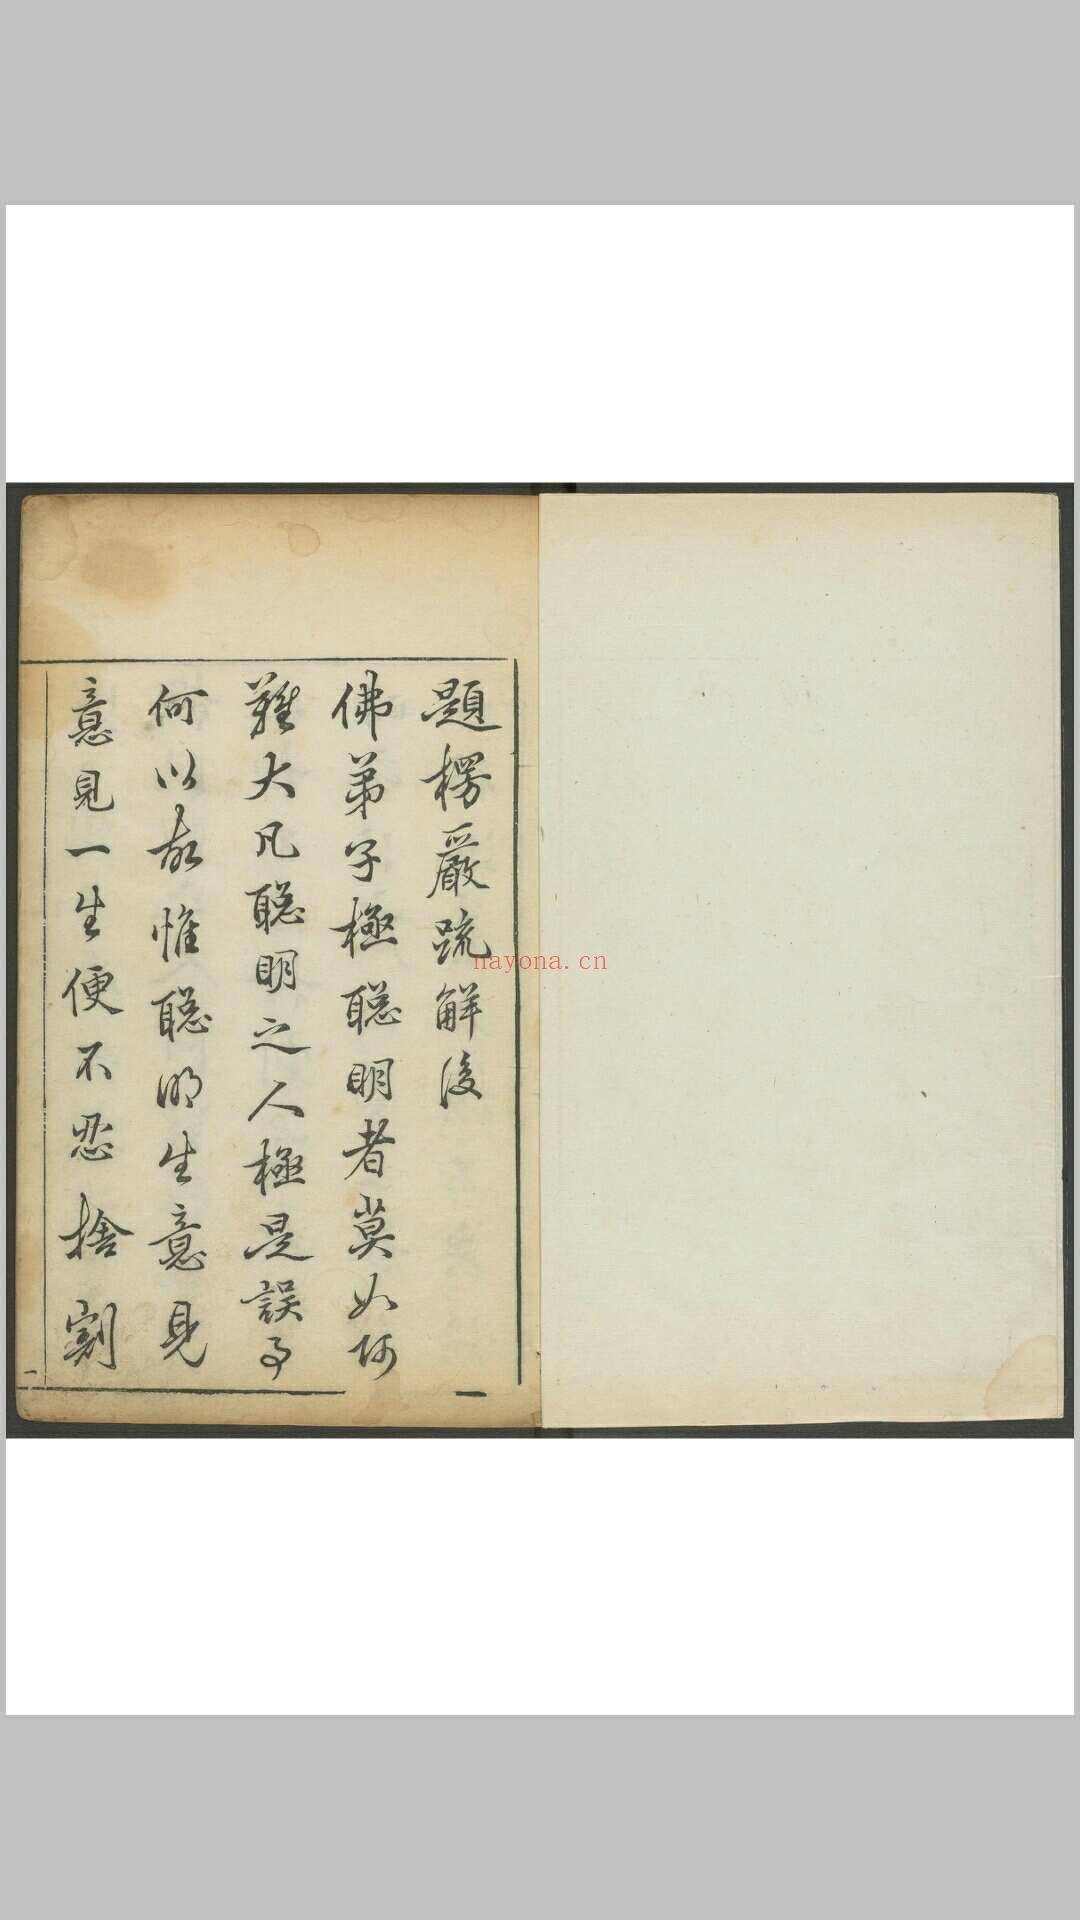 題楞嚴䟽解後
佛弟子極聰明者莫如阿
難大凡聰明之人極是誤事
何以故惟聰明生意見
意見一生便不忍捨割
一
一
nayona.cn